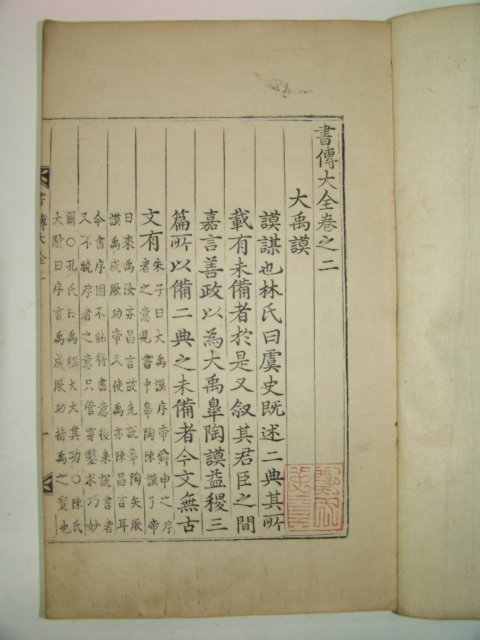 書傳大全卷之二
大禹謨
謨謀也林氏曰虞史既述二典其所
載有未備者於是又叙其君臣之間
嘉言善政以為大禹皐陶謨益稷三
篇所以備二典之未備者今文無古
文有
朱子曰大禹謨序帝舜申之序
者之意見書中皐陶陳謨了帝
曰來禹汝亦昌言故先說皐陶矢厥
謨禹成厥功帝又使禹亦陳昌言耳
今書序固不能得書意後來說書者
又不曉序者之意只管穿鑿求巧妙
爾○孔氏曰禹稱大大其功○陳氏
大猷曰序言禹成厥功指禹之實也
書傳大全